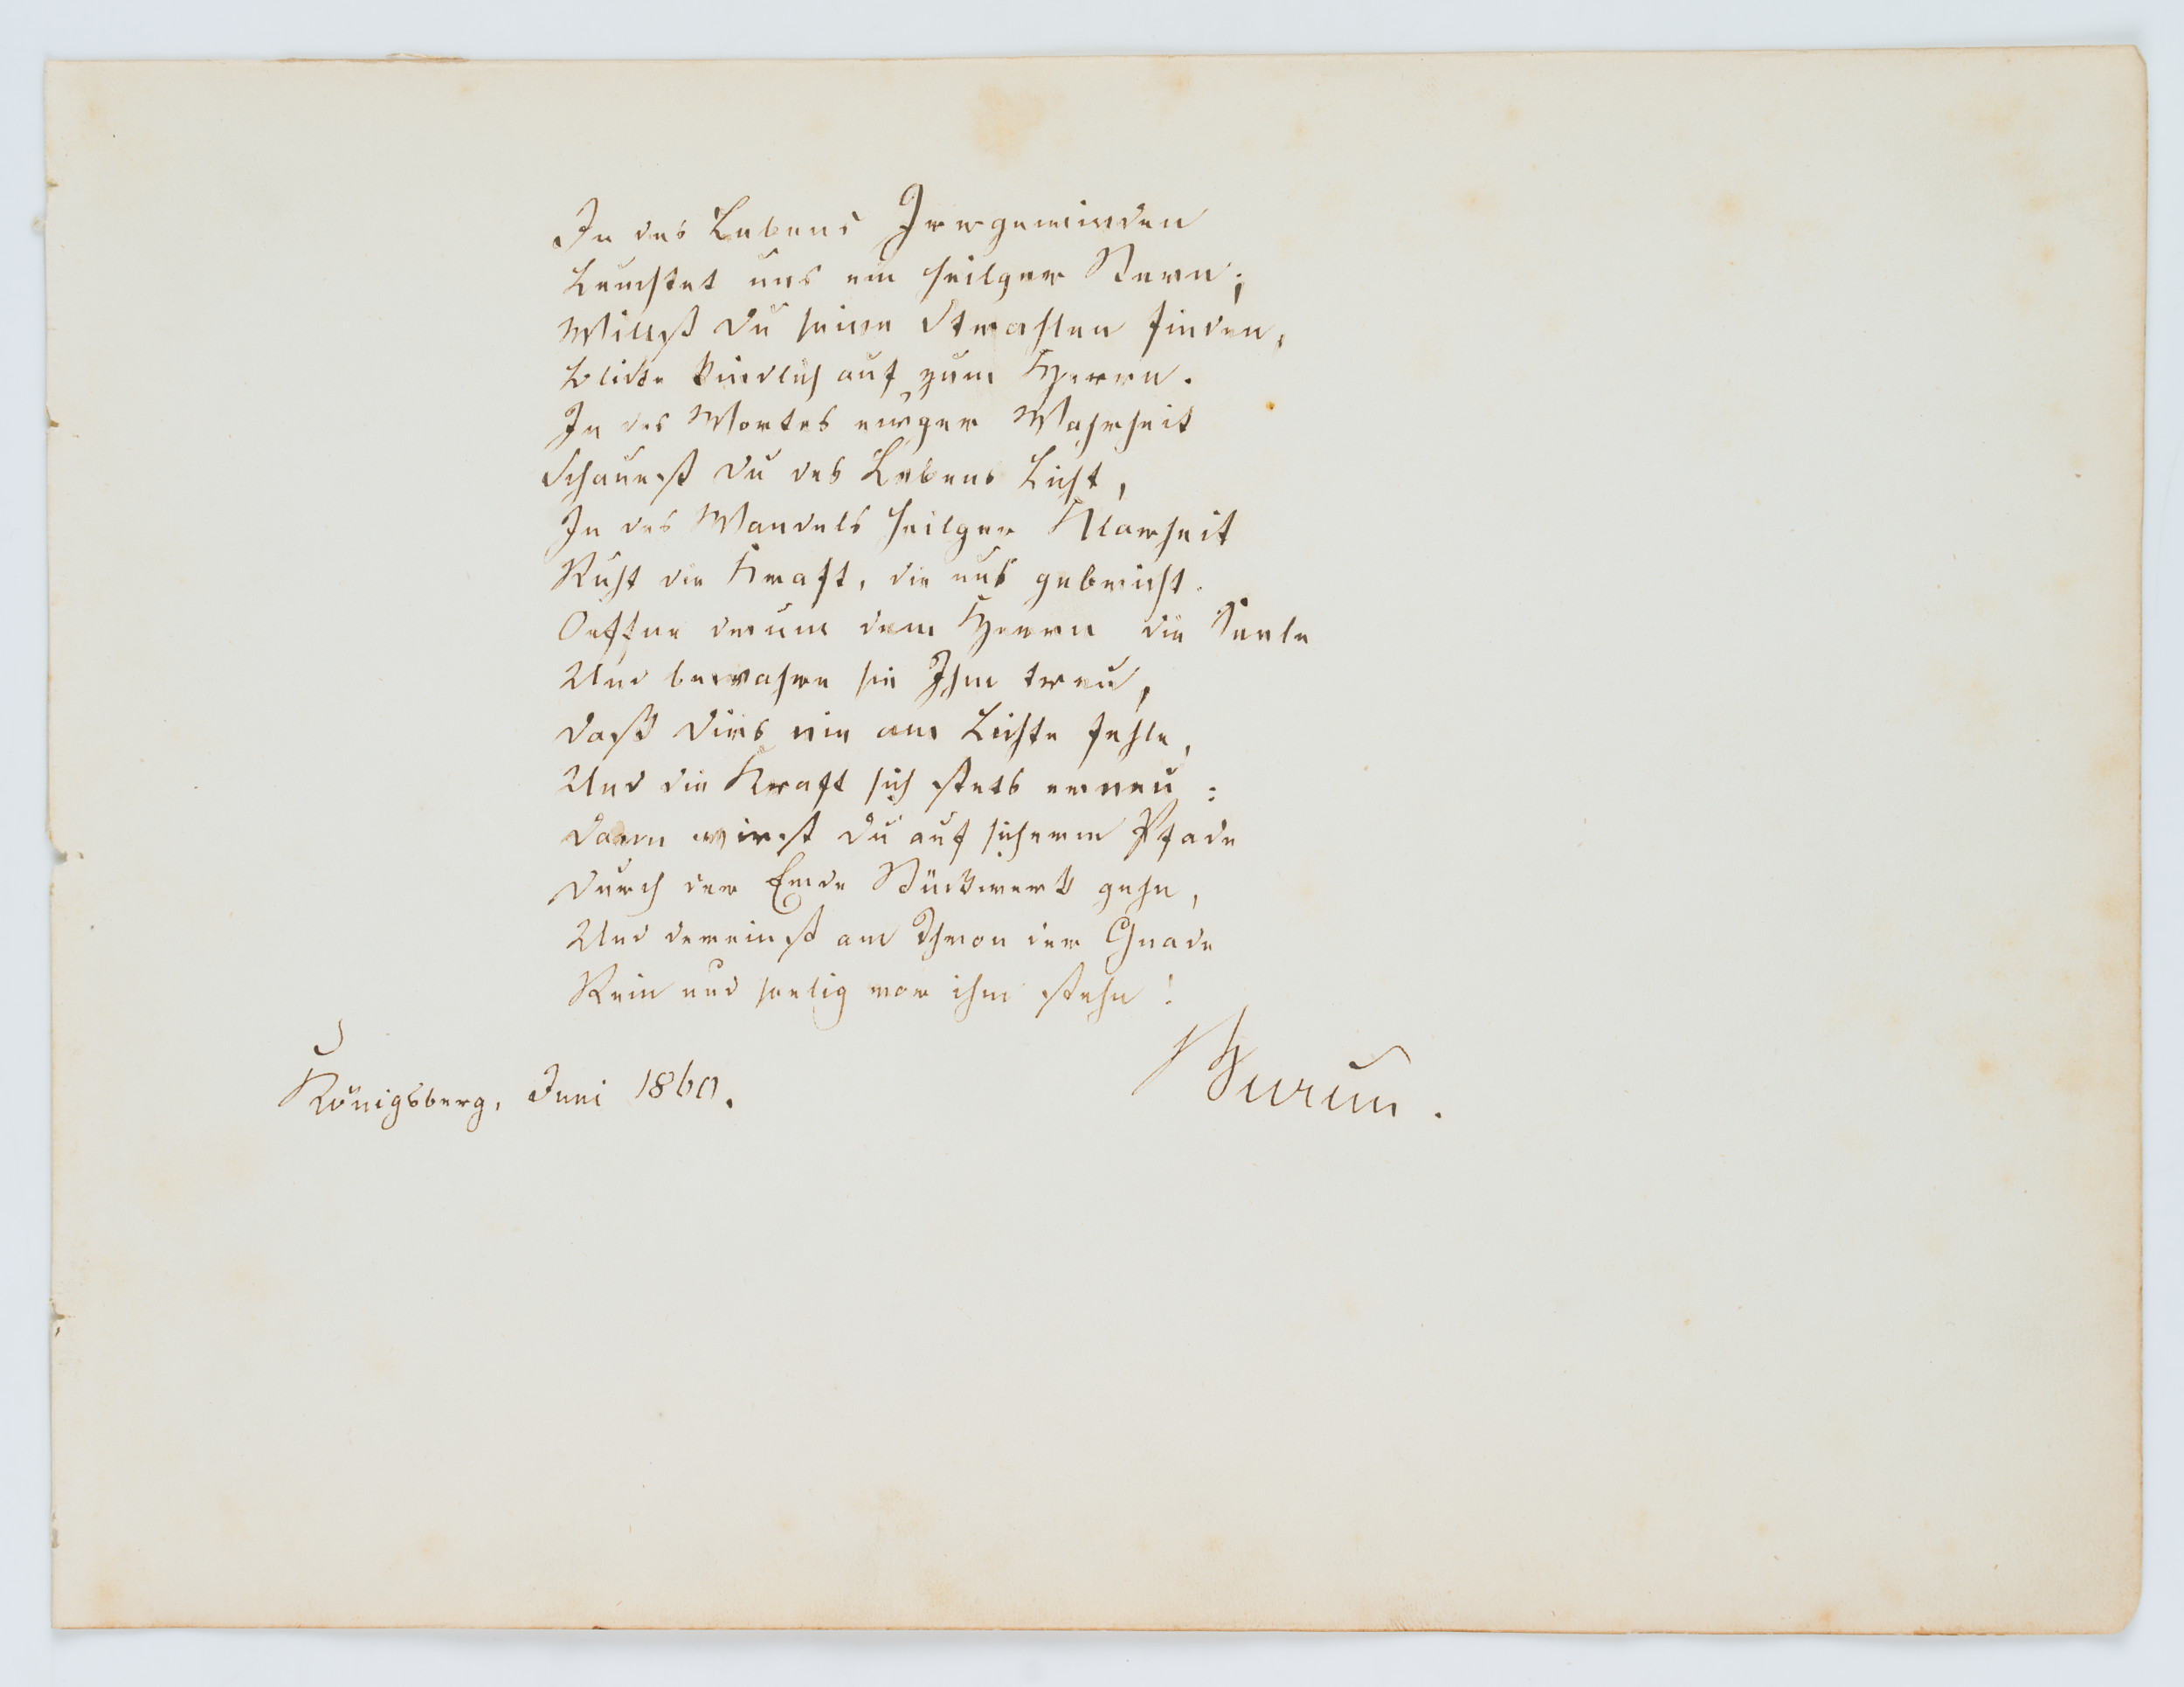 In des Lebens Irrgewinden
Leuchtet uns ein heilger Stern;
Willst du seine Strahlen finden,
Blicke kindlich auf zum Herrn.
In des Wortes ew'ger Wahrheit
Schauest du des Lebens Licht,
In des Wandels heilger Klarheit
Ruht die Kraft, die uns gebricht.
Oeffne drum dem Herrn die Seele
Und bewahre sie Ihm treu,
Daß dirs nie am Lichte fehle,
Und die Kraft sich stets erneu:
Dann wirst du auf sicherm Pfade
Durch der Erde Stückwerk gehn,
Und dereinst am Thron der Gnade
Rein und seelig vor ihm stehn!
Königsberg, Juni 1860.